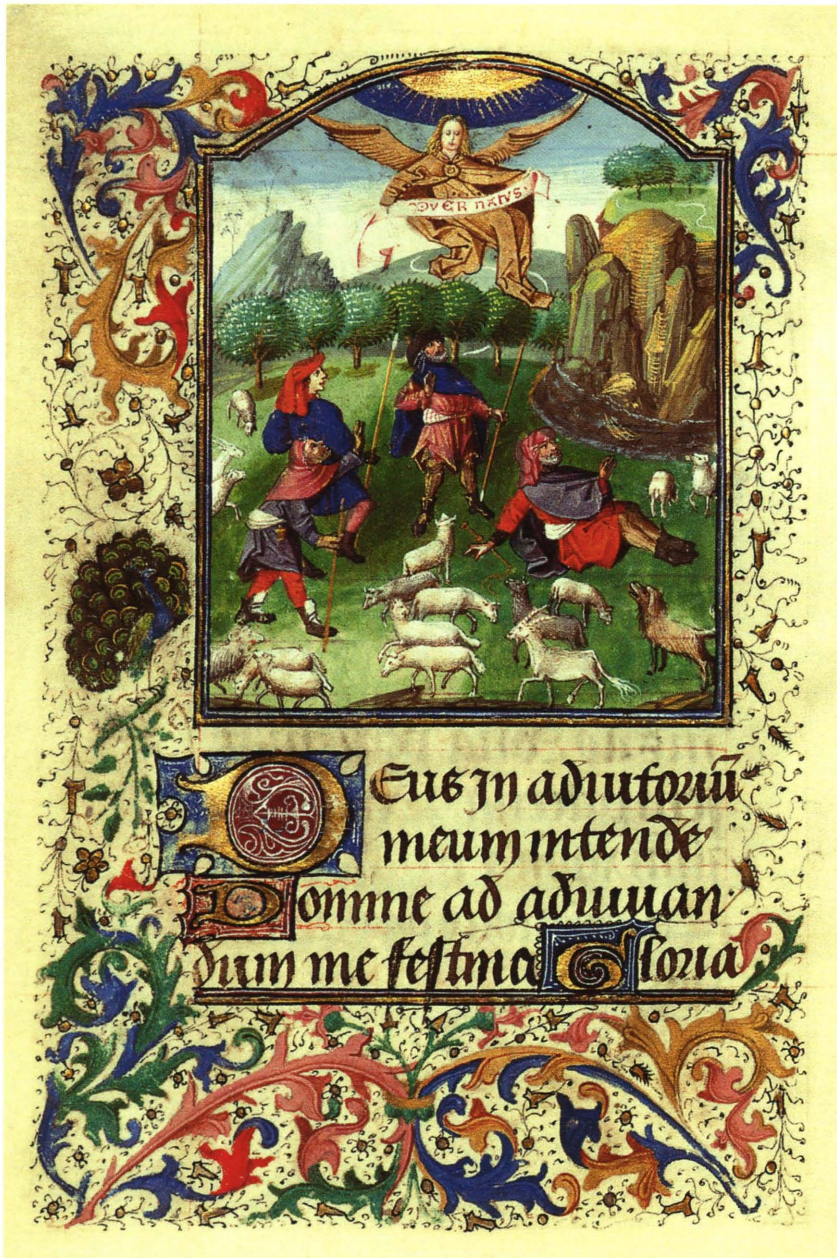 PVER NATVS
Deus in adiutoriū
meum intende
Domine ad adiuuan
dum me festina Gloria